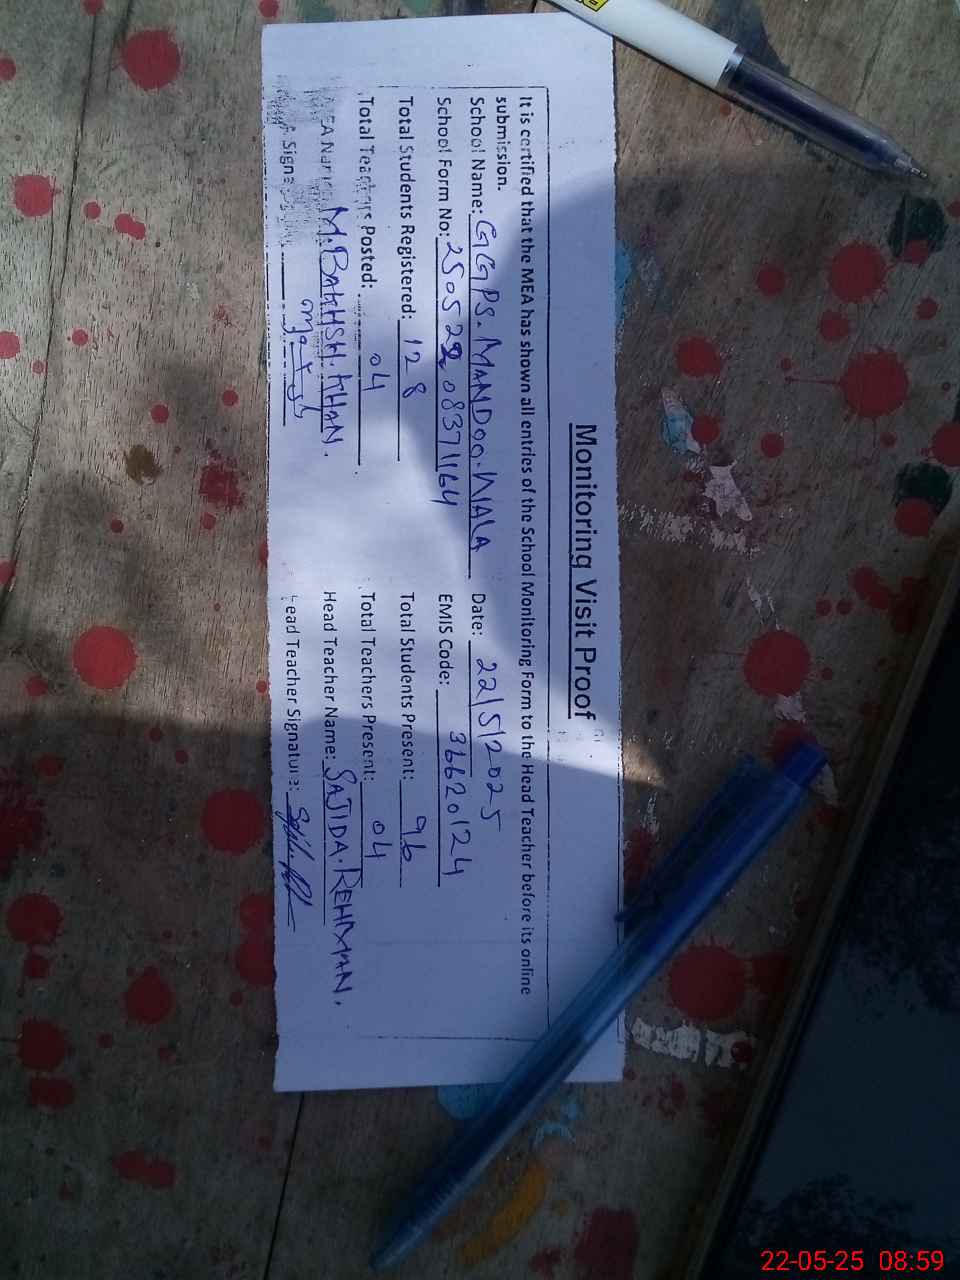 Monitoring Visit Proof
It is certified that the MEA has shown all entries of the School Monitoring Form to the Head Teacher before its online
submission.
School Name: GGPS. MANDOO. WALA Date: 22/5/2025
School Form No: 25052208371164 EMIS Code: 36620124
Total Students Registered: 128 Total Students Present: 96
Total Teachers Posted: 04 Total Teachers Present: 04
MEA Name: M. BAKHSH. KHAN. Head Teacher Name: SAJIDA. REHMAN.
Head Teacher Signature:
22-05-25 08:59